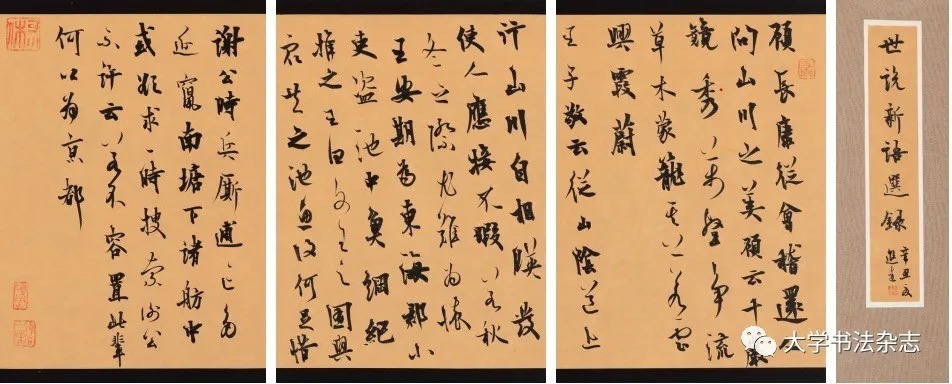 世说新语選録
辛丑夏
顧長康從會稽還人
問山川之美顧云千巖
競秀万壑争流
草木蒙籠其上若雲
興霞蔚
王子敬云從山陰道上
行山川自相暎發
使人應接不暇若秋
冬之際尤難為懷
王安期為東海郡小
吏盗池中魚綱紀
推之王曰文王之囿與
眾共之池魚復何足惜
謝公時兵厮逋亡多
近竄南塘下諸舫中
或欲求一時搜索謝公
不許云若不容置此輩
何以為京都
大学书法杂志